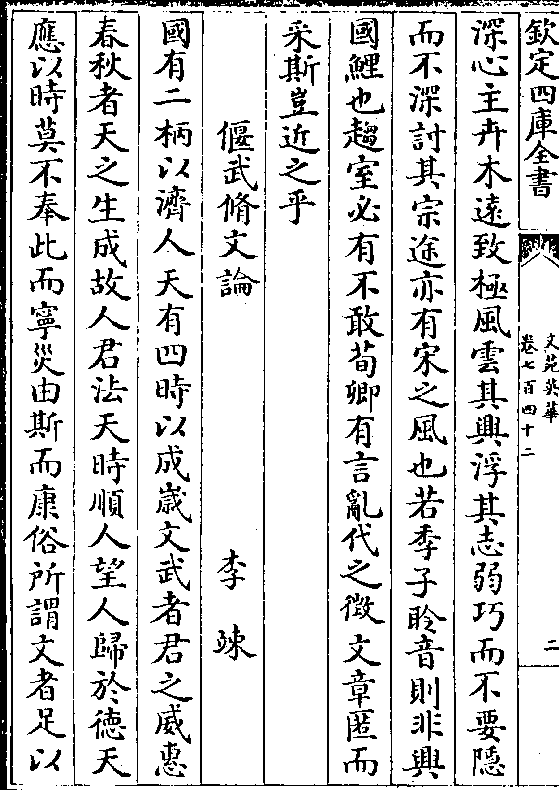 欽定四庫全書
文苑英華
卷七百四十二
二
深心主卉木遠致極風雲其興浮其志弱巧而不要隠
而不深討其宗途亦有宋之風也若季子聆音則非興
國鯉也趨室必有不敢荀卿有言亂代之徴文章匿而
采斯豈近之乎
偃武脩文論
李竦
國有二柄以濟人天有四時以成嵗文武者君之威惠
春秋者天之生成故人君法天時順人望人歸於徳天
應以時莫不奉此而寧災由斯而康俗所謂文者足以